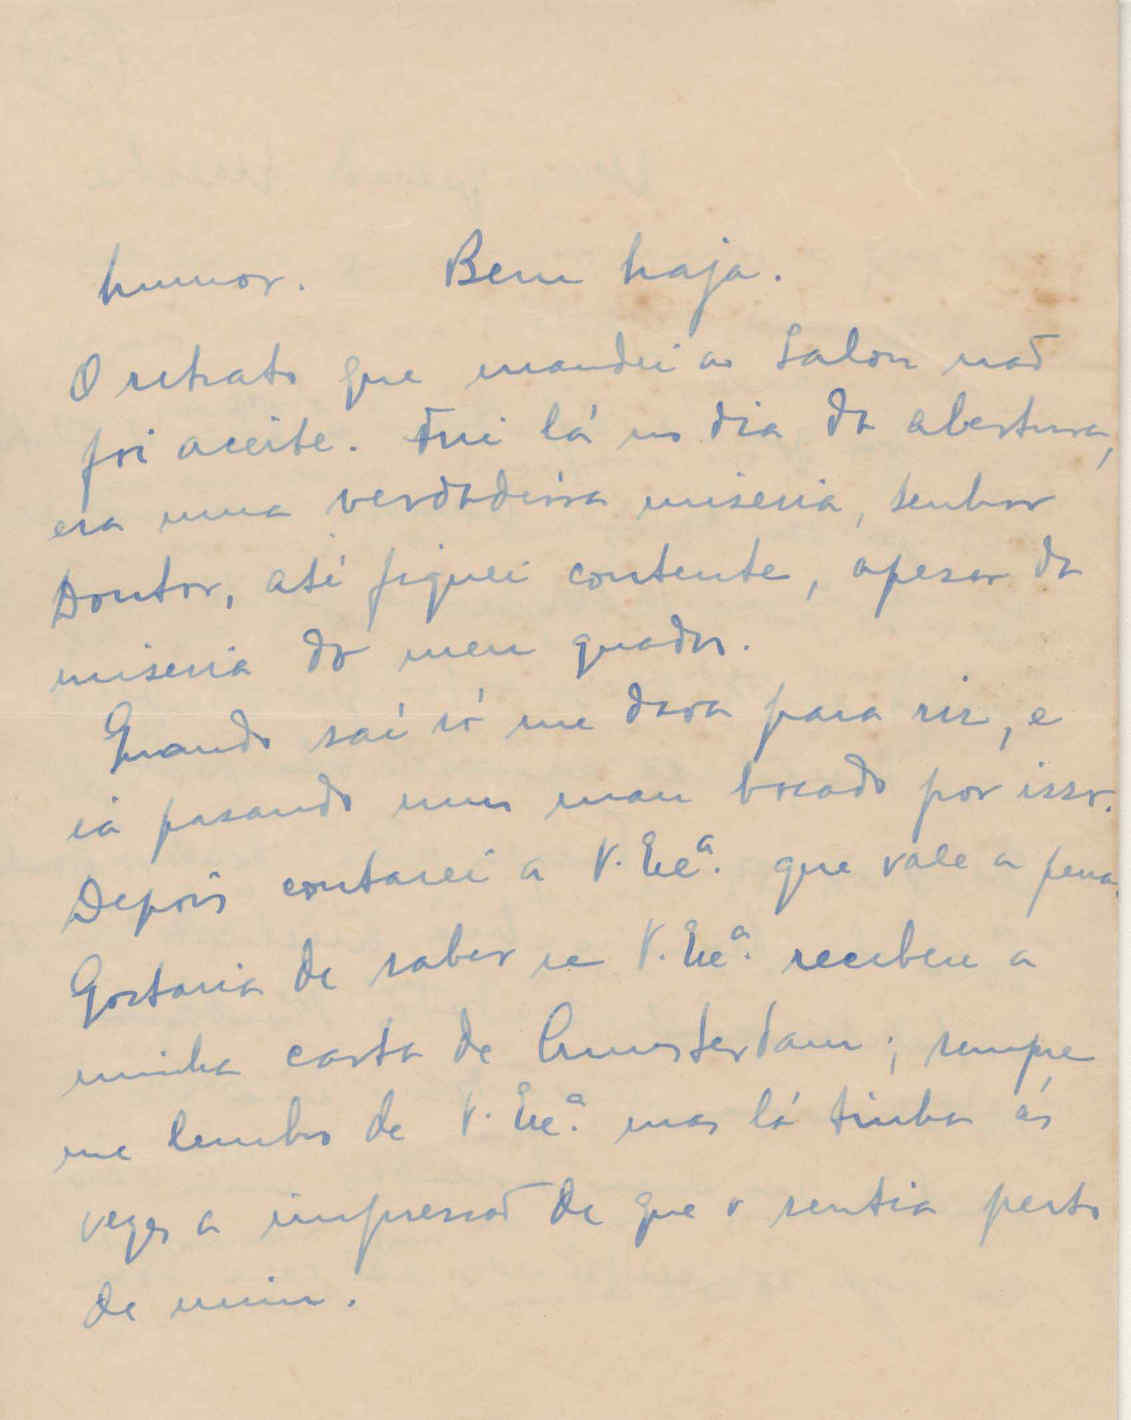 humor. Bem haja.
O retrato que mandei ao Salon não
foi aceite. Fui lá no dia da abertura,
era uma verdadeira miseria, senhor
Doutor, até fiquei contente, apesar da
miseria do meu quadro.
Quando saí só me dava para rir, e
ia pasando num mau bocado por isso.
Depois contarei a V. Exª. que vale a pena.
Gostaria de saber se V. Exª. recebeu a
minha carta de Amsterdam; sempre
me lembro de V. Exª. mas lá tinha ás
vezes a impressão de que o sentia perto
de mim.